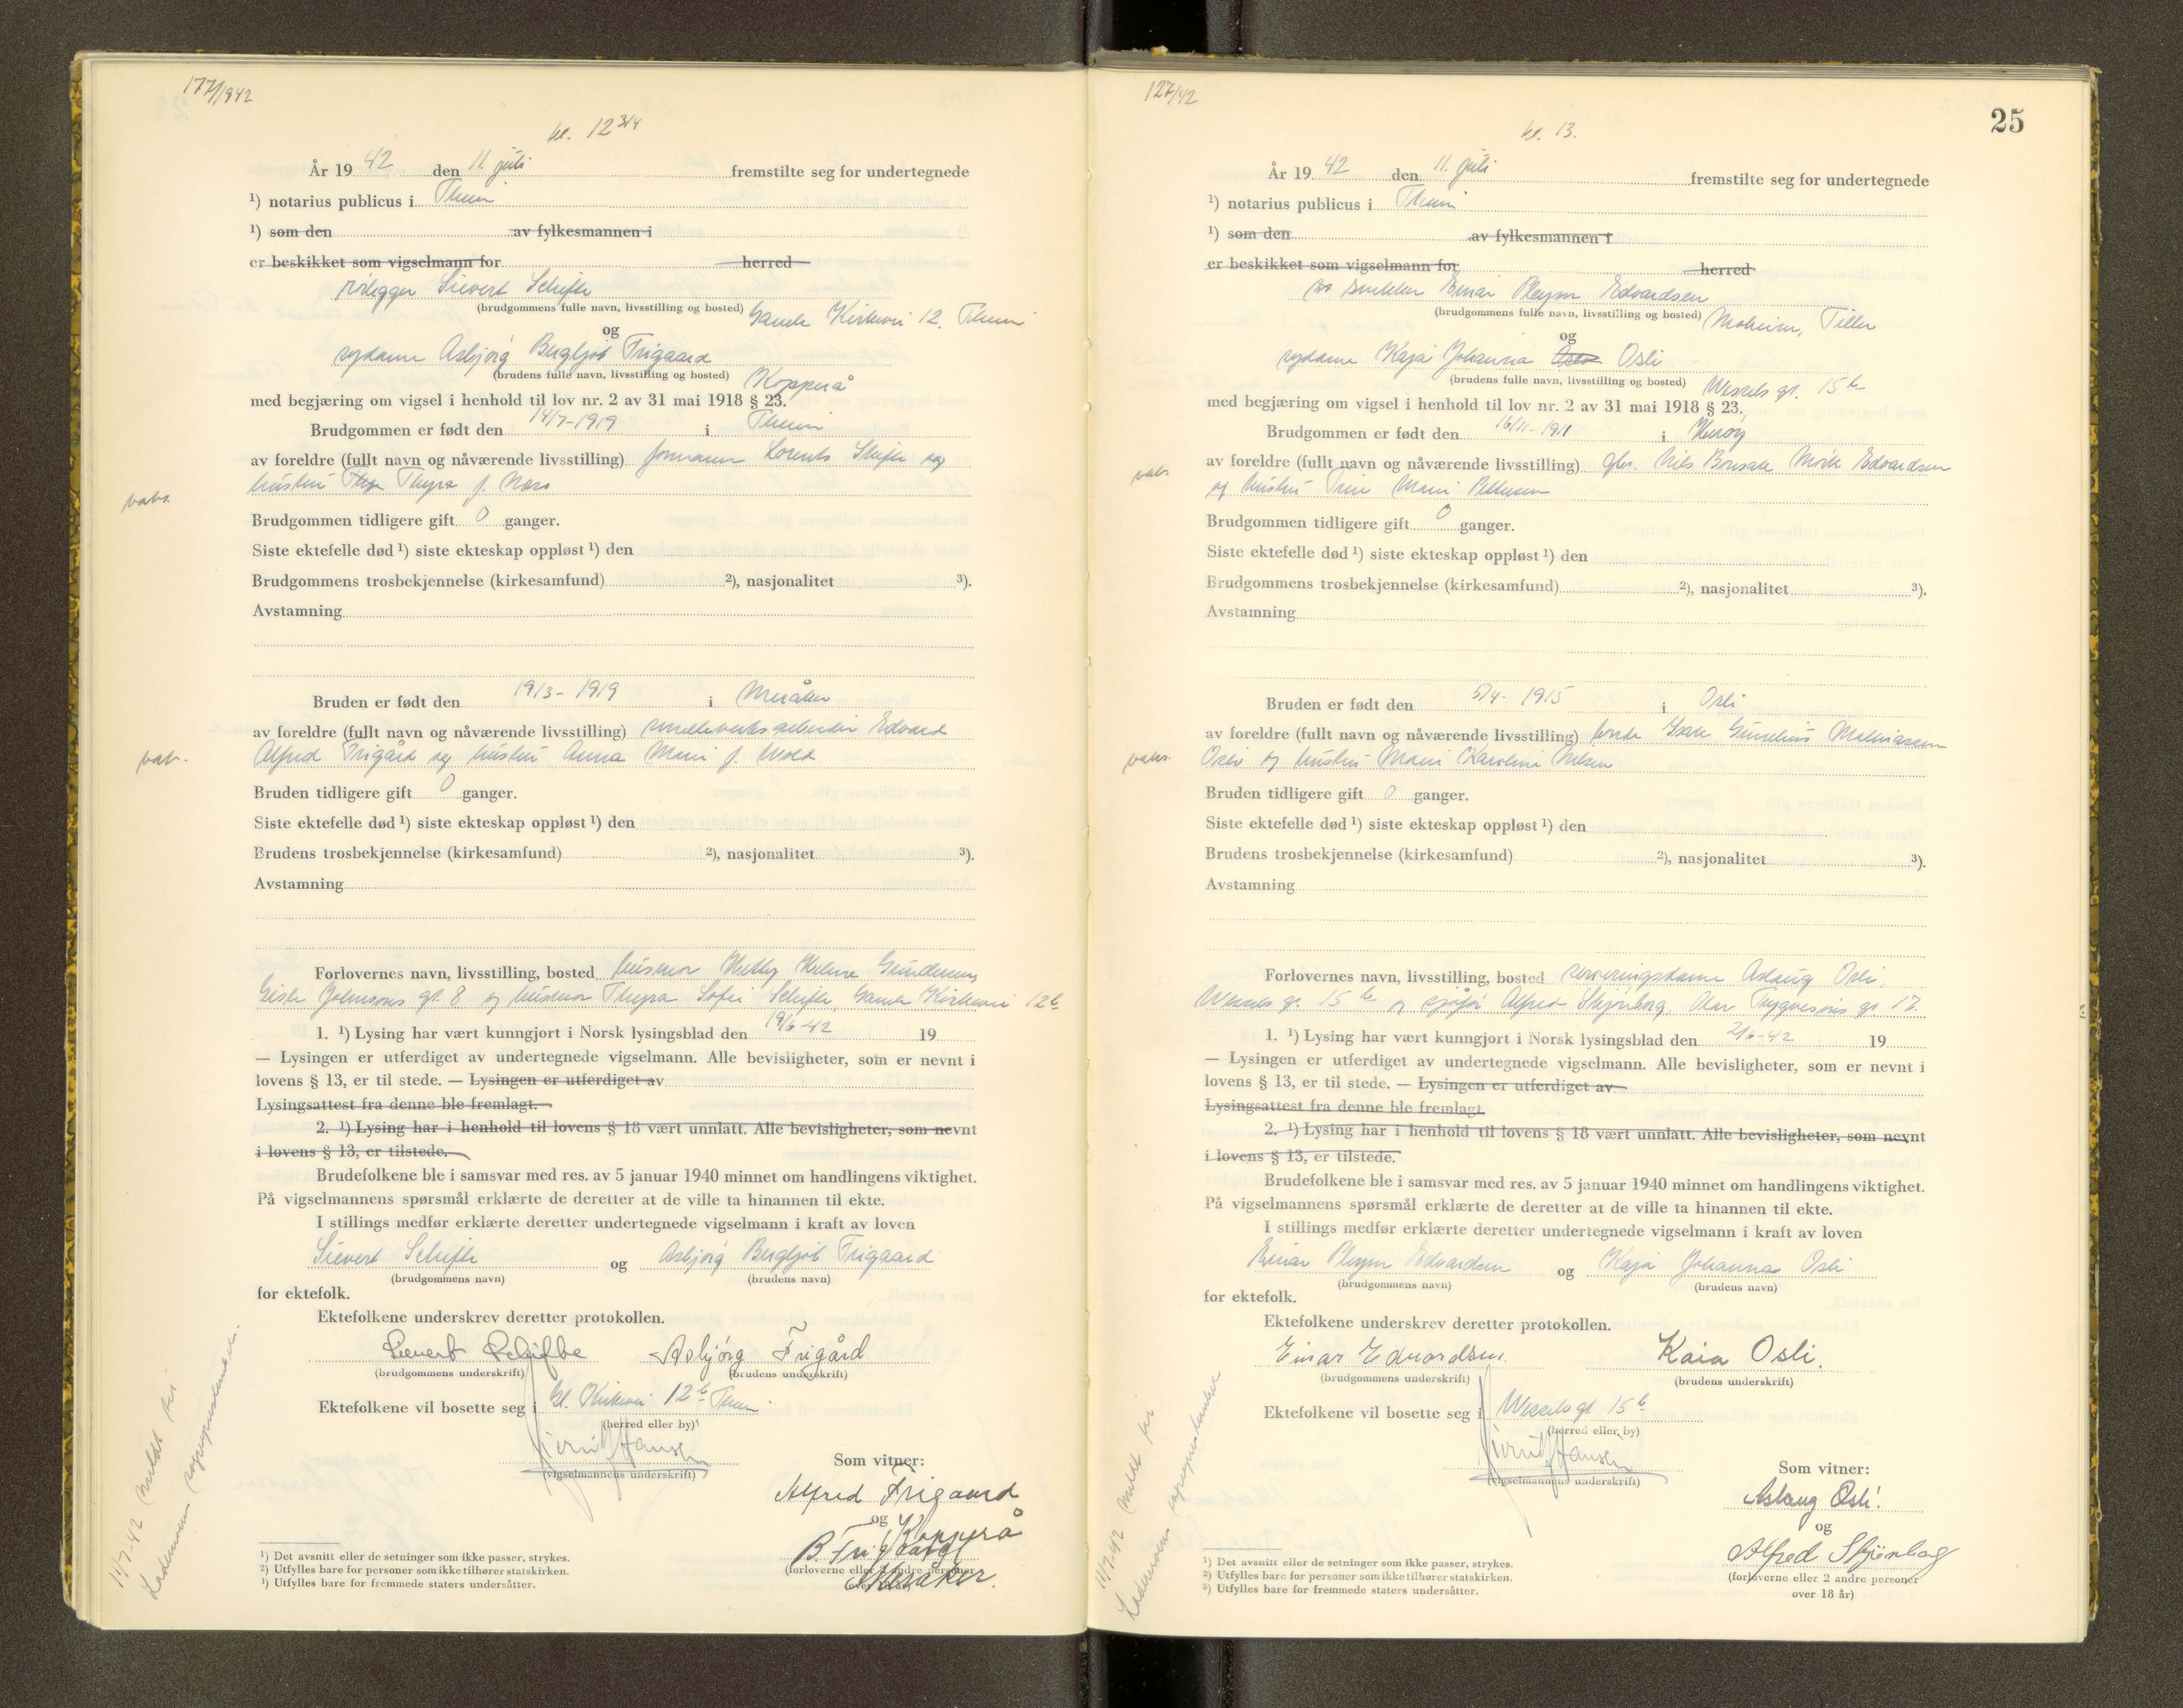 177/1942
kl. 12 3/4
År 19 42 den 11. juli fremstilte seg for undertegnede
¹) notarius publicus i Thm
¹) som den av fylkesmannen i
er beskikket som vigselmann for herred
rørlegger Sievert Schifte
(brudgommens fulle navn, livsstilling og bosted) Gamle Kirkevei 12, Thm
og
sydame Asbjörg Bergljot Trigaard
(brudens fulle navn, livsstilling og bosted) Kopperå
med begjæring om vigsel i henhold til lov nr. 2 av 31 mai 1918 § 23.
Brudgommen er født den 14/7-1919 i Thm
av foreldre (fullt navn og nåværende livsstilling) formann Lorents Schifte og
hustru Thyra f. Næss
vaks.
Brudgommen tidligere gift 0 ganger.
Siste ektefelle død ¹) siste ekteskap oppløst ¹) den
Brudgommens trosbekjennelse (kirkesamfund) ²), nasjonalitet ³).
Avstamning
Bruden er født den 19/3-1919 i Meråker
av foreldre (fullt navn og nåværende livsstilling) smelteverksarbeider Edvard
Alfred Trigård og hustru Anna Marie f. Wold
vaks.
Bruden tidligere gift 0 ganger.
Siste ektefelle død ¹) siste ekteskap oppløst ¹) den
Brudens trosbekjennelse (kirkesamfund) ²), nasjonalitet ³).
Avstamning
Forlovernes navn, livsstilling, bosted husmor Helene Gundersen
Gisle Johnsons gt. 8 og husmor Thyra Sofie Schifte, Gamle Kirkevei 12b
1. ¹) Lysing har vært kunngjort i Norsk lysingsblad den 19/6-42 19
— Lysingen er utferdiget av undertegnede vigselmann. Alle bevisligheter, som er nevnt i
lovens § 13, er til stede. — Lysingen er utferdiget av
Lysingsattest fra denne ble fremlagt.
2. ¹) Lysing har i henhold til lovens § 18 vært unnlatt. Alle bevisligheter, som nevnt
i lovens § 13, er tilstede.
Brudefolkene ble i samsvar med res. av 5 januar 1940 minnet om handlingens viktighet.
På vigselmannens spørsmål erklærte de deretter at de ville ta hinannen til ekte.
I stillings medfør erklærte deretter undertegnede vigselmann i kraft av loven
Sievert Schifte og Asbjörg Bergljot Trigaard
(brudgommens navn) (brudens navn)
for ektefolk.
Ektefolkene underskrev deretter protokollen.
Sievert Schifte Asbjörg Trigård
(brudgommens underskrift) (brudens underskrift)
Ektefolkene vil bosette seg i Gl. Kirkevei 12b Thm
(herred eller by)
Hansen
(vigselmannens underskrift)
Som vitner:
Alfred Trigaard
og Kopperå
B. Trigaard
(forloverne eller 2 andre personer
Meråker.
11/7-42 meldt til
¹) Det avsnitt eller de setninger som ikke passer, strykes.
²) Utfylles bare for personer som ikke tilhører statskirken.
³) Utfylles bare for fremmede staters undersåtter.
127/42
25
kl. 13.
År 19 42 den 11. juli fremstilte seg for undertegnede
¹) notarius publicus i Thm
¹) som den av fylkesmannen i
er beskikket som vigselmann for herred
snekker Einar Pleym Edvardsen
(brudgommens fulle navn, livsstilling og bosted) Moheim, Tiller
og
sydame Kaja Johanna Osli
(brudens fulle navn, livsstilling og bosted) Wessels gt. 15b
med begjæring om vigsel i henhold til lov nr. 2 av 31 mai 1918 § 23.
Brudgommen er født den 16/11-1911 i Herøy
av foreldre (fullt navn og nåværende livsstilling) Nils Mørk Edvardsen
og hustru Trine Marie Pettersen
vaks.
Brudgommen tidligere gift 0 ganger.
Siste ektefelle død ¹) siste ekteskap oppløst ¹) den
Brudgommens trosbekjennelse (kirkesamfund) ²), nasjonalitet ³).
Avstamning
Bruden er født den 5/4-1915 i Osli
av foreldre (fullt navn og nåværende livsstilling) bonde Isak Gunelius Mathiassen
Osli og hustru Marie Karoline Nilsen
vaks.
Bruden tidligere gift 0 ganger.
Siste ektefelle død ¹) siste ekteskap oppløst ¹) den
Brudens trosbekjennelse (kirkesamfund) ²), nasjonalitet ³).
Avstamning
Forlovernes navn, livsstilling, bosted serveringsdame Aslaug Osli,
Wessels gt. 15b og sjåfør Alfred Skjönberg, Olav Tryggvesons gt. 17.
1. ¹) Lysing har vært kunngjort i Norsk lysingsblad den 2/6-42 19
— Lysingen er utferdiget av undertegnede vigselmann. Alle bevisligheter, som er nevnt i
lovens § 13, er til stede. — Lysingen er utferdiget av
Lysingsattest fra denne ble fremlagt.
2. ¹) Lysing har i henhold til lovens § 18 vært unnlatt. Alle bevisligheter, som nevnt
i lovens § 13, er tilstede.
Brudefolkene ble i samsvar med res. av 5 januar 1940 minnet om handlingens viktighet.
På vigselmannens spørsmål erklærte de deretter at de ville ta hinannen til ekte.
I stillings medfør erklærte deretter undertegnede vigselmann i kraft av loven
Einar Pleym Edvardsen og Kaja Johanna Osli
(brudgommens navn) (brudens navn)
for ektefolk.
Ektefolkene underskrev deretter protokollen.
Einar Edvardsen. Kaia Osli.
(brudgommens underskrift) (brudens underskrift)
Ektefolkene vil bosette seg i Wessels gt. 15b
(herred eller by)
Hansen
(vigselmannens underskrift)
Som vitner:
Aslaug Osli.
og
Alfred Skjönberg
(forloverne eller 2 andre personer
over 18 år)
11/7-42 meldt til
¹) Det avsnitt eller de setninger som ikke passer, strykes.
²) Utfylles bare for personer som ikke tilhører statskirken.
³) Utfylles bare for fremmede staters undersåtter.